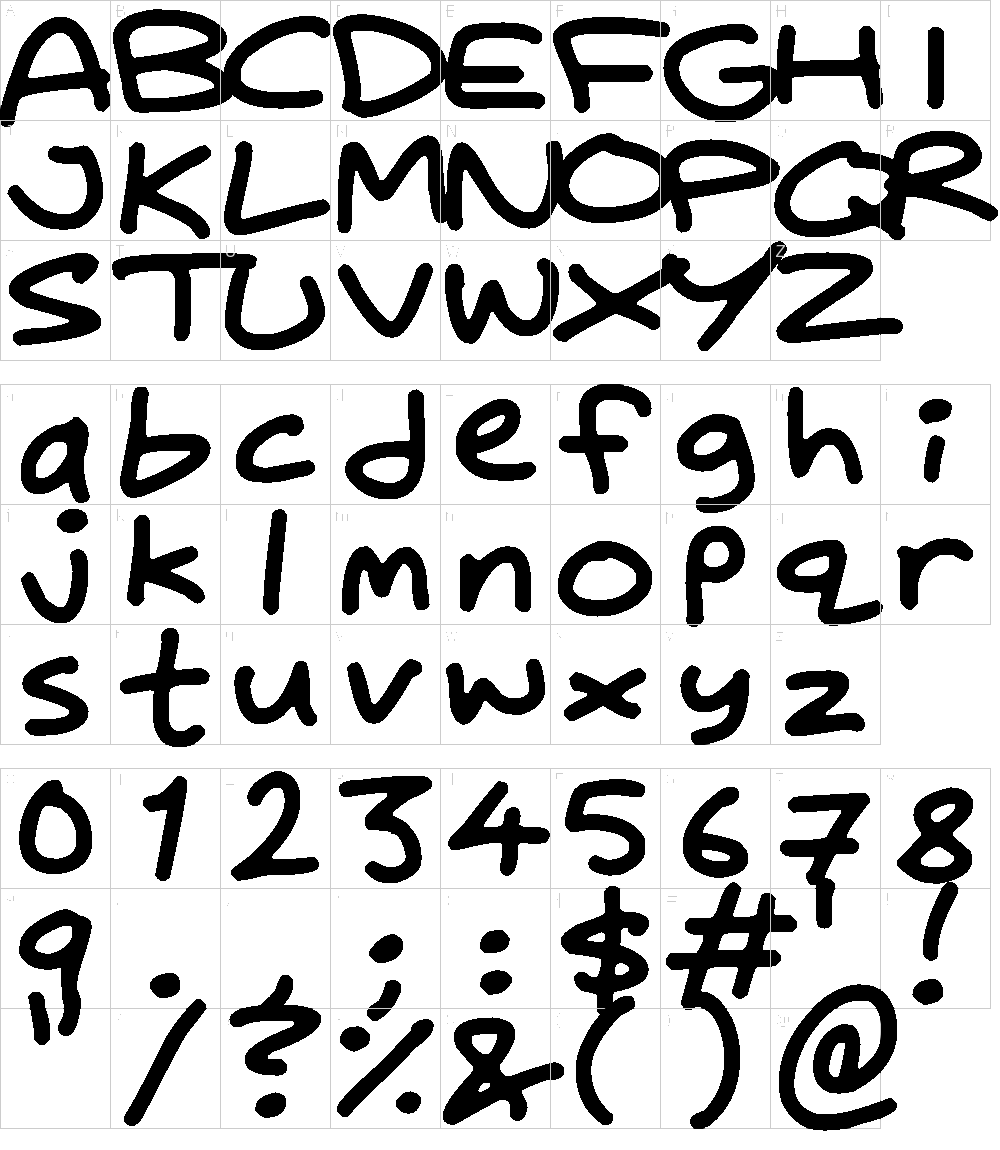 A B C D E F G H I
J K L M N O P Q R
S T U V W X Y Z
a b c d e f g h i
j k l m n o p q r
s t u v w x y z
0 1 2 3 4 5 6 7 8
9 . , ; : $ # ' !
" / ? % & ( ) @